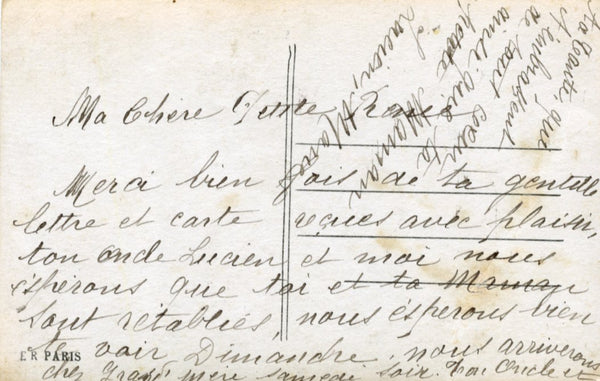 Ma Chère Petite
Merci bien fois de ta gentille
lettre et carte reçues avec plaisir,
ton oncle Lucien et moi nous
éspérons que toi et ta Maman
sont rétablies, nous éspérons bien
te voir Dimanche, nous arriverons
chez Grand mère samedi soir. Ton Oncle et
ta tante, qui
t'embrassent
de tout
amitié
Maman
Lucien,
ER PARIS